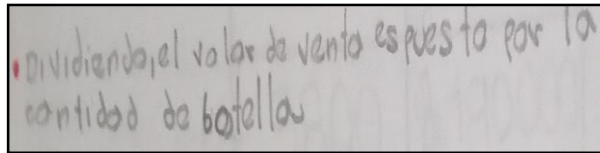 • Dividiendo, el valor de venta espuesto por la
cantidad de botella